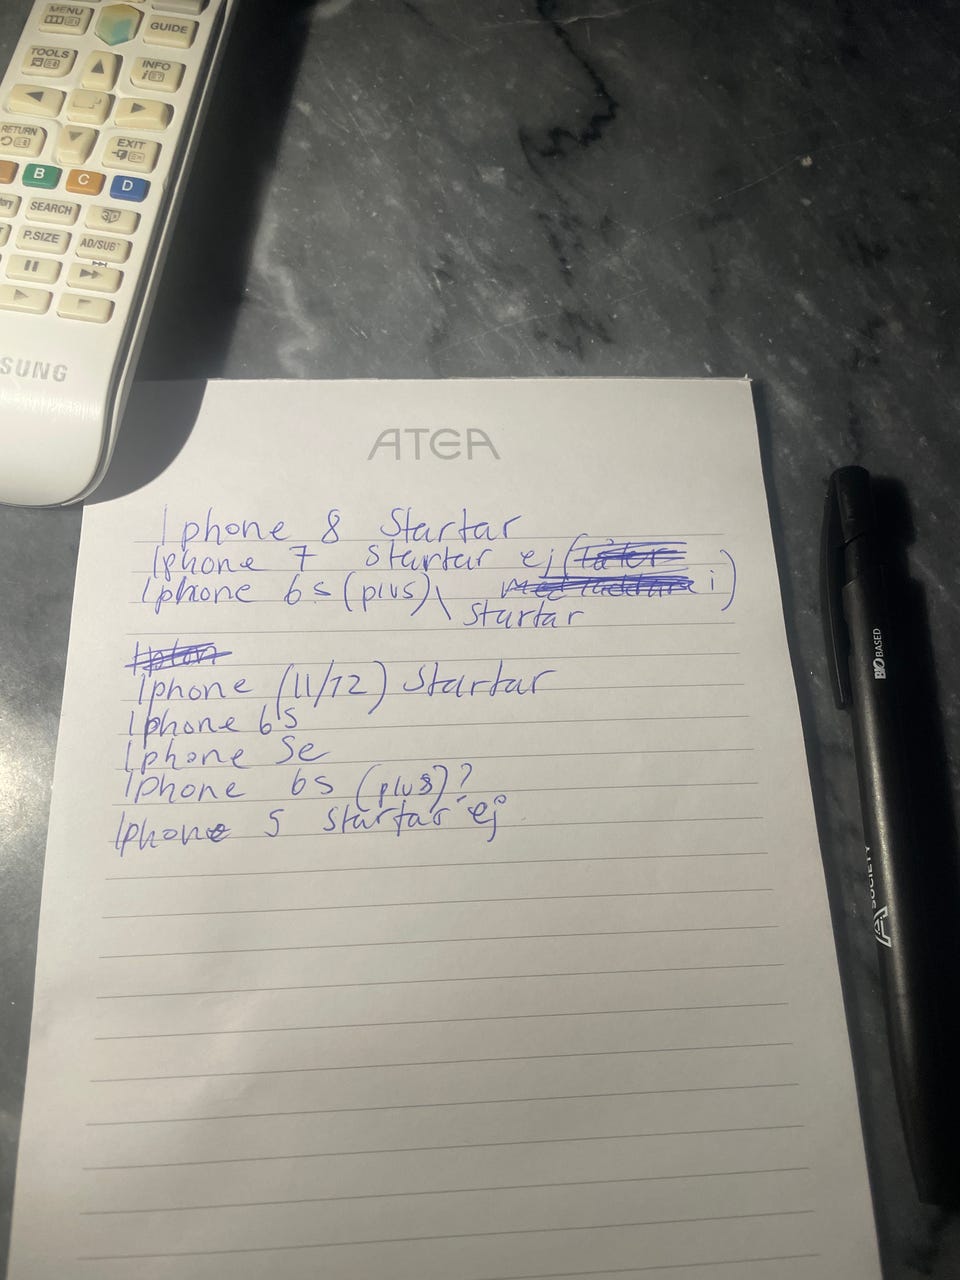 MENU
GUIDE
TOOLS
INFO
RETURN
EXIT
B C D
SEARCH
P.SIZE AD/SUBT
SUNG
ATEA
Iphone 8 Startar
Iphone 7 Startar ej (
Iphone 6s (plus) \ i)
Startar
Iphone (11/12) Startar
Iphone 6s
Iphone Se
Iphone 6s (plus)?
Iphone 5 Startar ej
BIOBASED
A SOCIETY